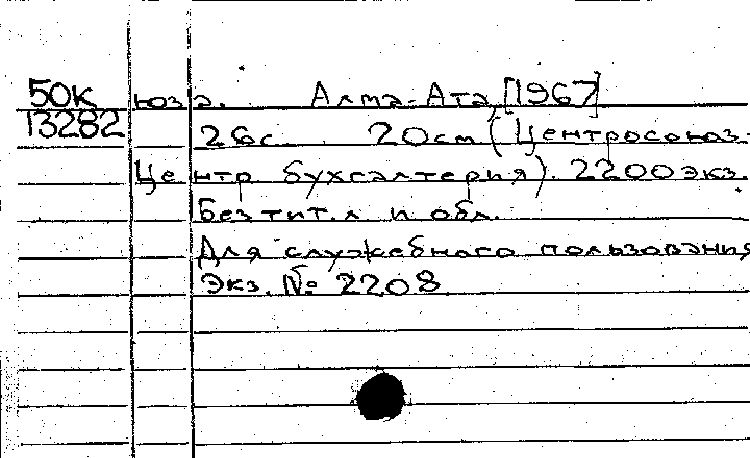 50К юза. Алма-Ата, [1967]
13282 26с. 20см (Центросоюз.
Центр бухгалтерия). 2200 экз.
Без тит. л и обл.
Для служебного пользования
Экз. № 2208